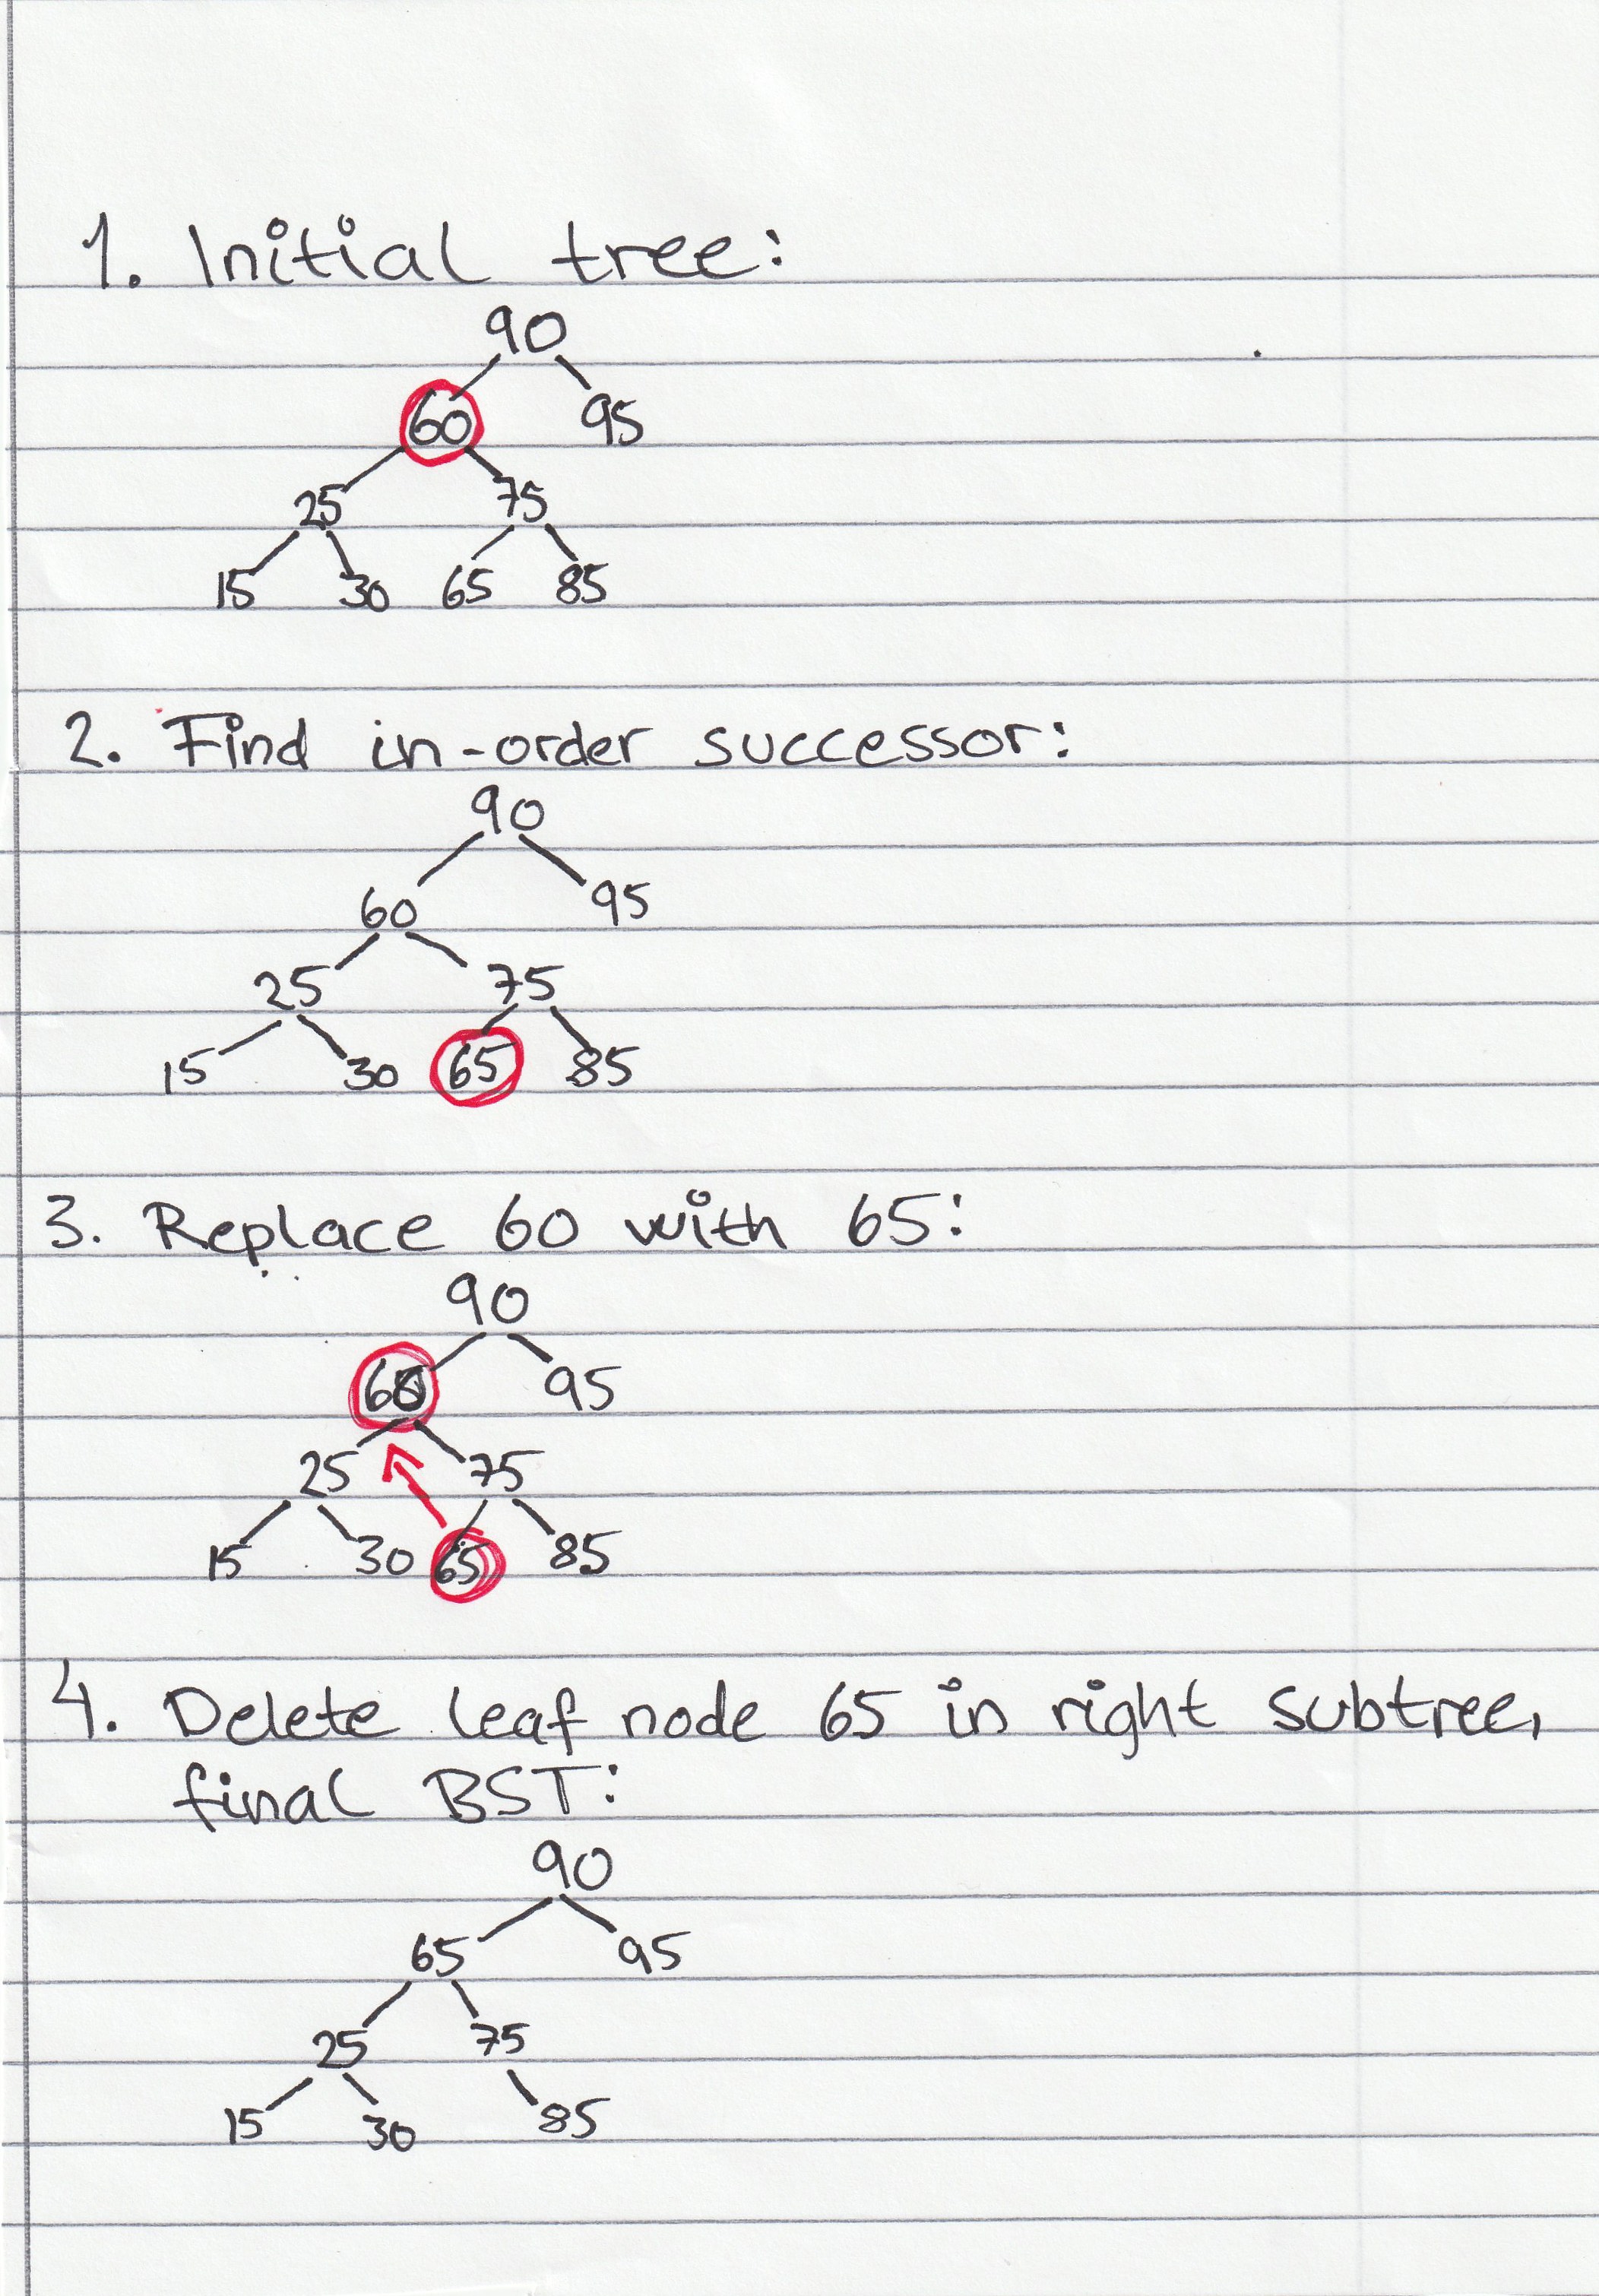 1. Initial tree:
90
60 95
25 75
15 30 65 85
2. Find in-order successor:
90
60 95
25 75
15 30 65 85
3. Replace 60 with 65:
90
95
25 75
15 30 65 85
4. Delete leaf node 65 in right subtree,
final BST:
90
65 95
25 75
15 30 85